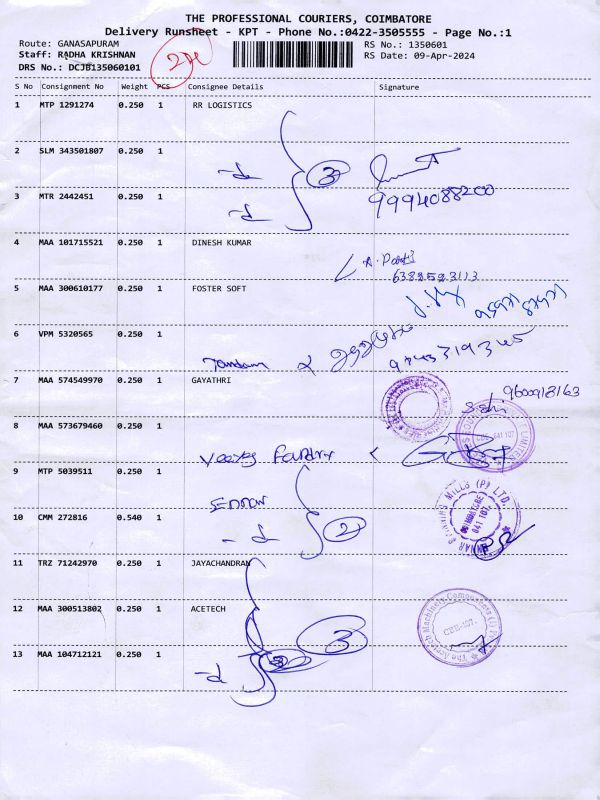 THE PROFESSIONAL COURIERS, COIMBATORE
Delivery Runsheet - KPT - Phone No.:0422-3505555 - Page No.:1
Route: GANASAPURAM RS No.: 1350601
Staff: RADHA KRISHNAN RS Date: 09-Apr-2024
DRS No.: DCJB135060101
S No Consignment No Weight PCS Consignee Details Signature
1 MTP 1291274 0.250 1 RR LOGISTICS
2 SLM 343501807 0.250 1 -d 3
9994088200
3 MTR 2442451 0.250 1 -d
4 MAA 101715521 0.250 1 DINESH KUMAR
6382523113
5 MAA 300610177 0.250 1 FOSTER SOFT
6 VPM 5320565 0.250 1
7 MAA 574549970 0.250 1 GAYATHRI
9600918163
8 MAA 573679460 0.250 1
CBE-641 107.
9 MTP 5039511 0.250 1
MILLS (P) LTD.
COIMBATORE
641 107.
10 CMM 272816 0.540 1 -d 2
11 TRZ 71242970 0.250 1 JAYACHANDRAN
12 MAA 300513802 0.250 1 ACETECH
The Acetech Machinery Components (I) P
CBE-107.
3
13 MAA 104712121 0.250 1 -d